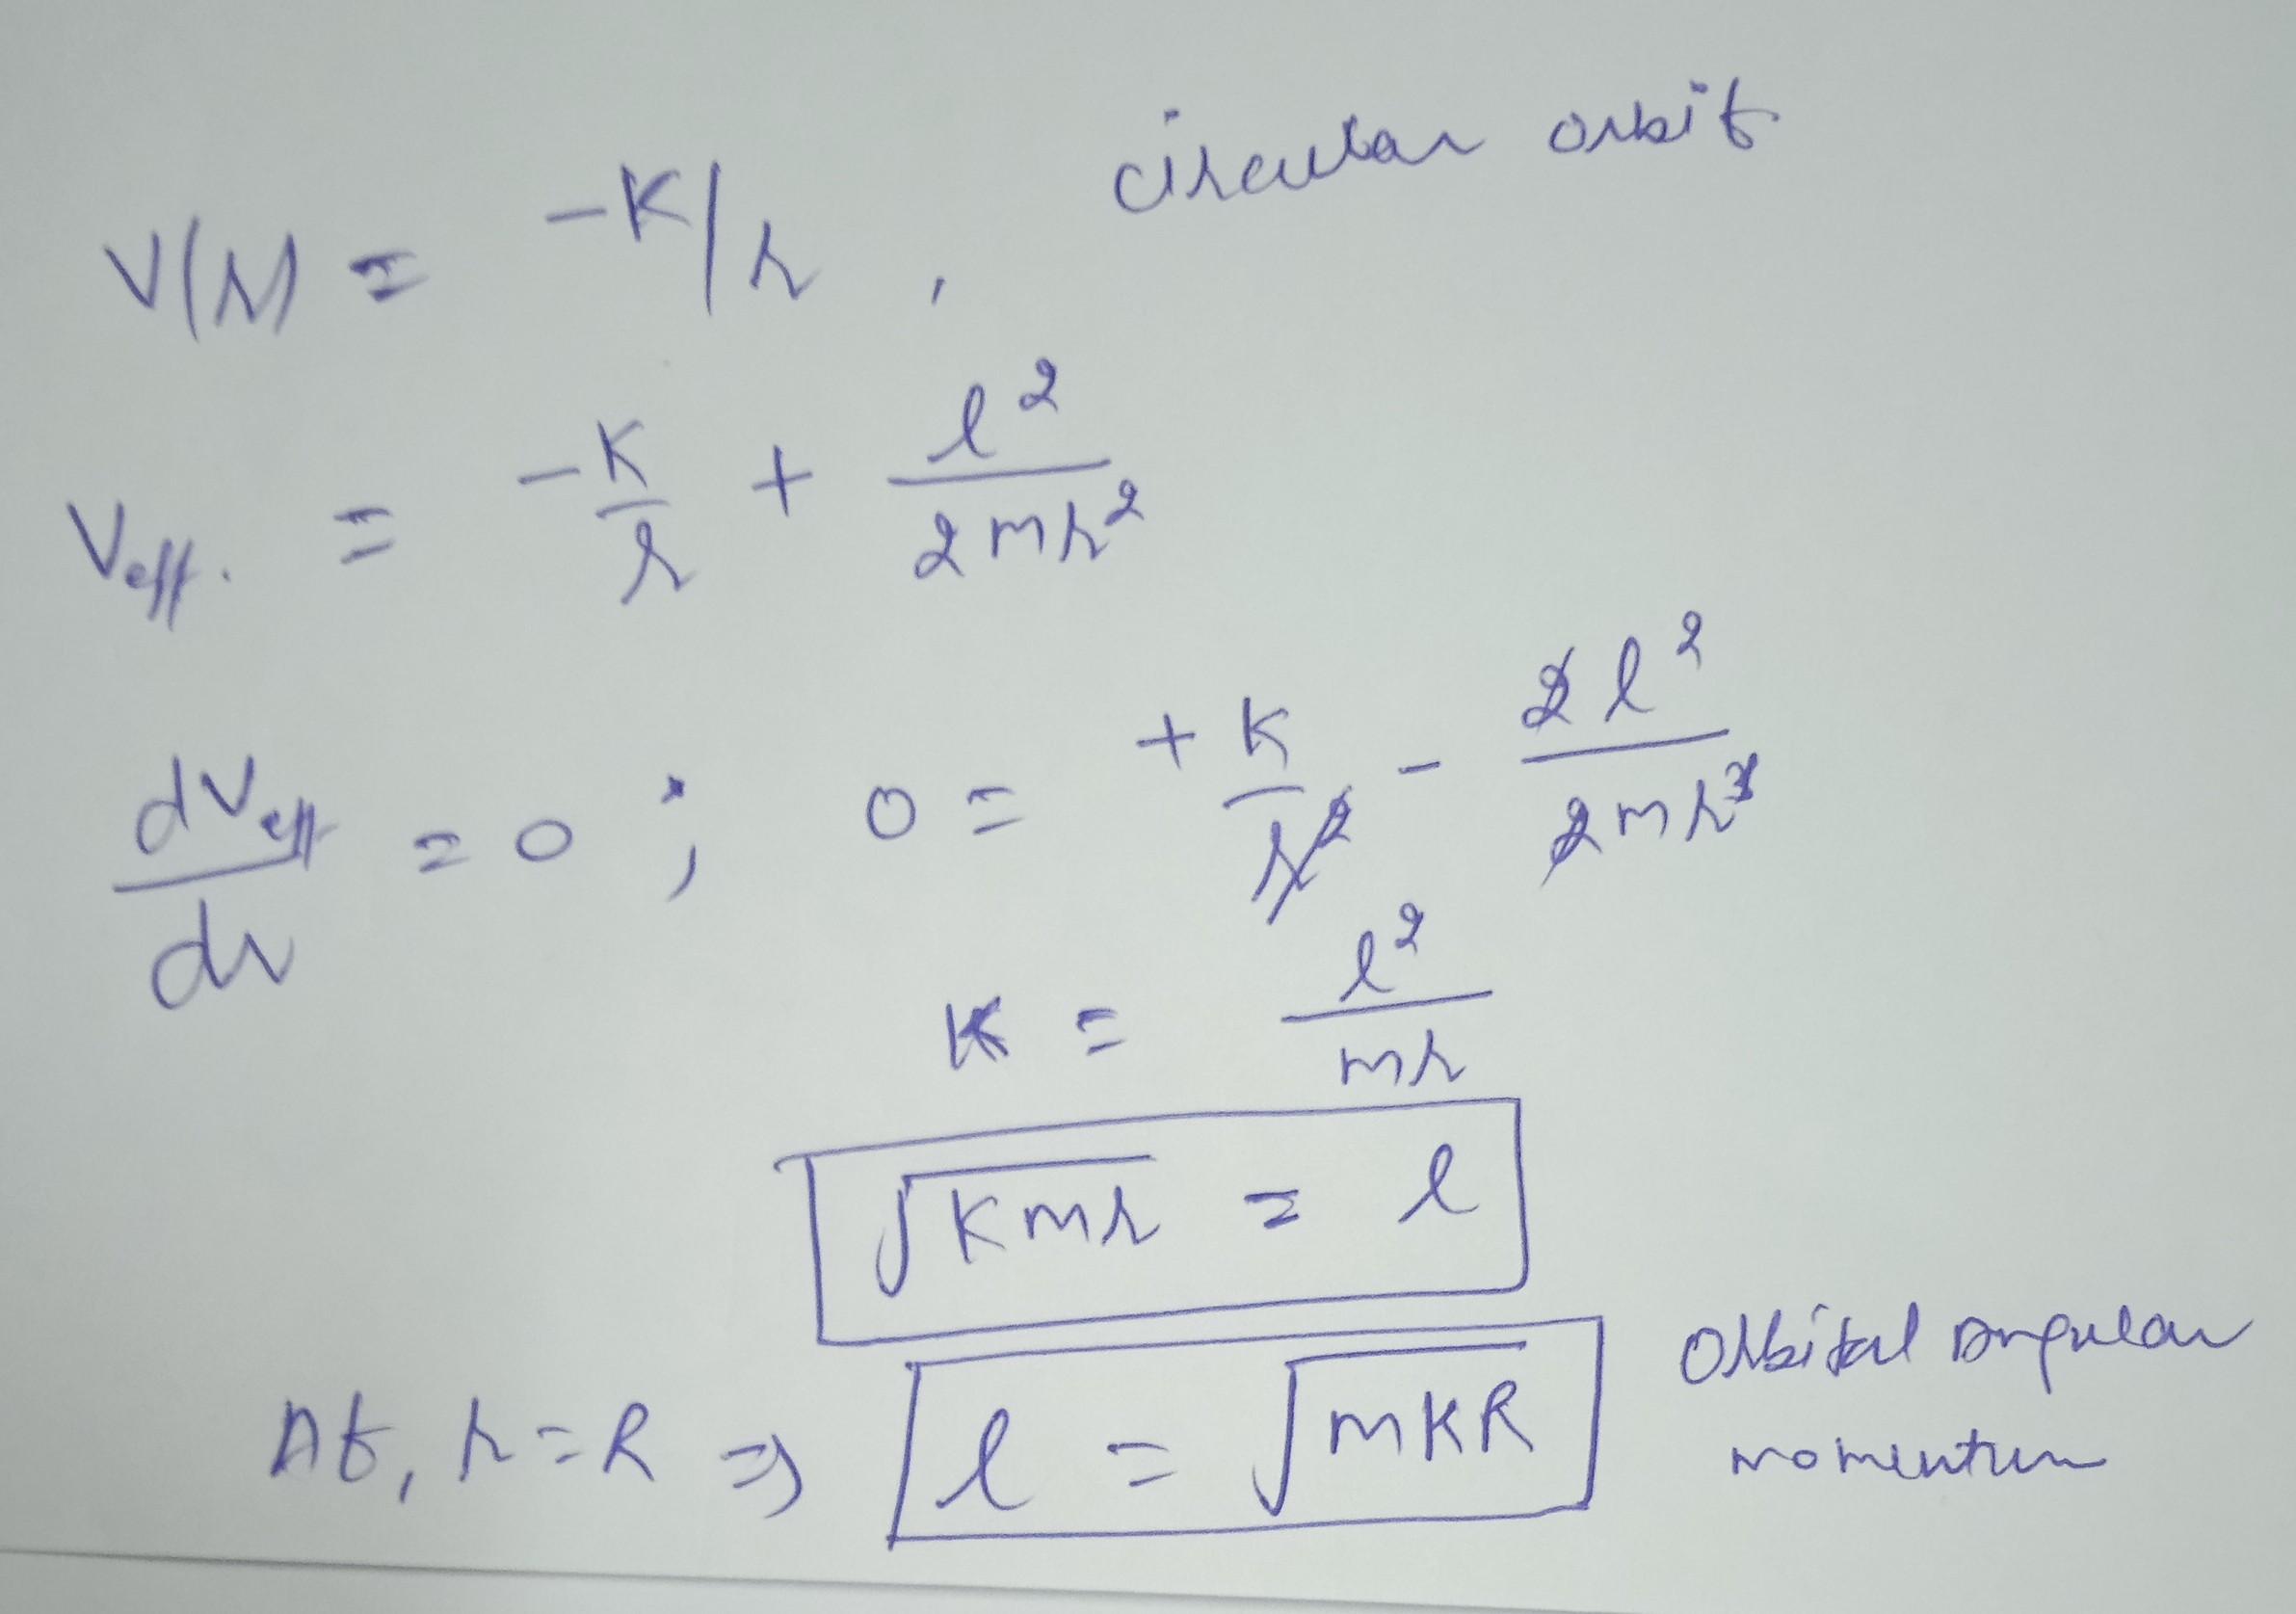 V(r) = -K/r , circular orbit
Veff. = -K/r + l²/2mr²
dVeff/dr = 0 ; 0 = +K/r² - 2l²/2mr³
K = l²/mr
√Kmr = l
At, r = R ⇒ l = √mKR Orbital angular
momentum